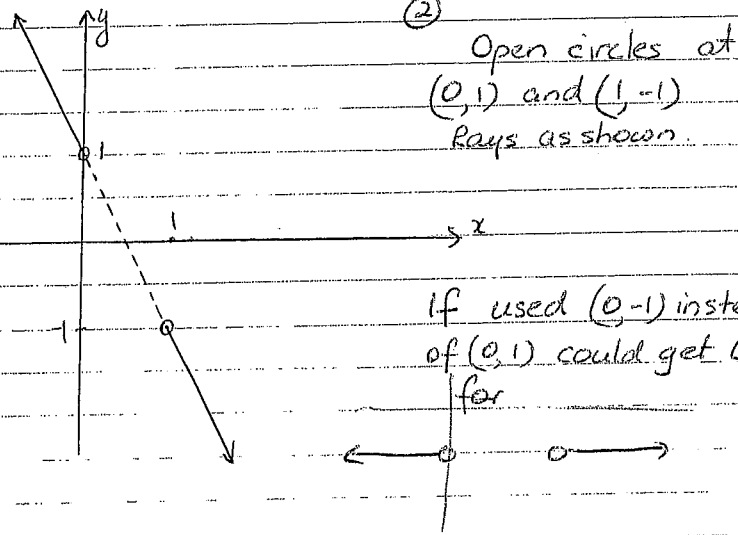 ②
y
Open circles at
(0,1) and (1,-1)
Rays as shown.
1
1
x
-1
If used (0,-1) inste
of (0,1) could get
for